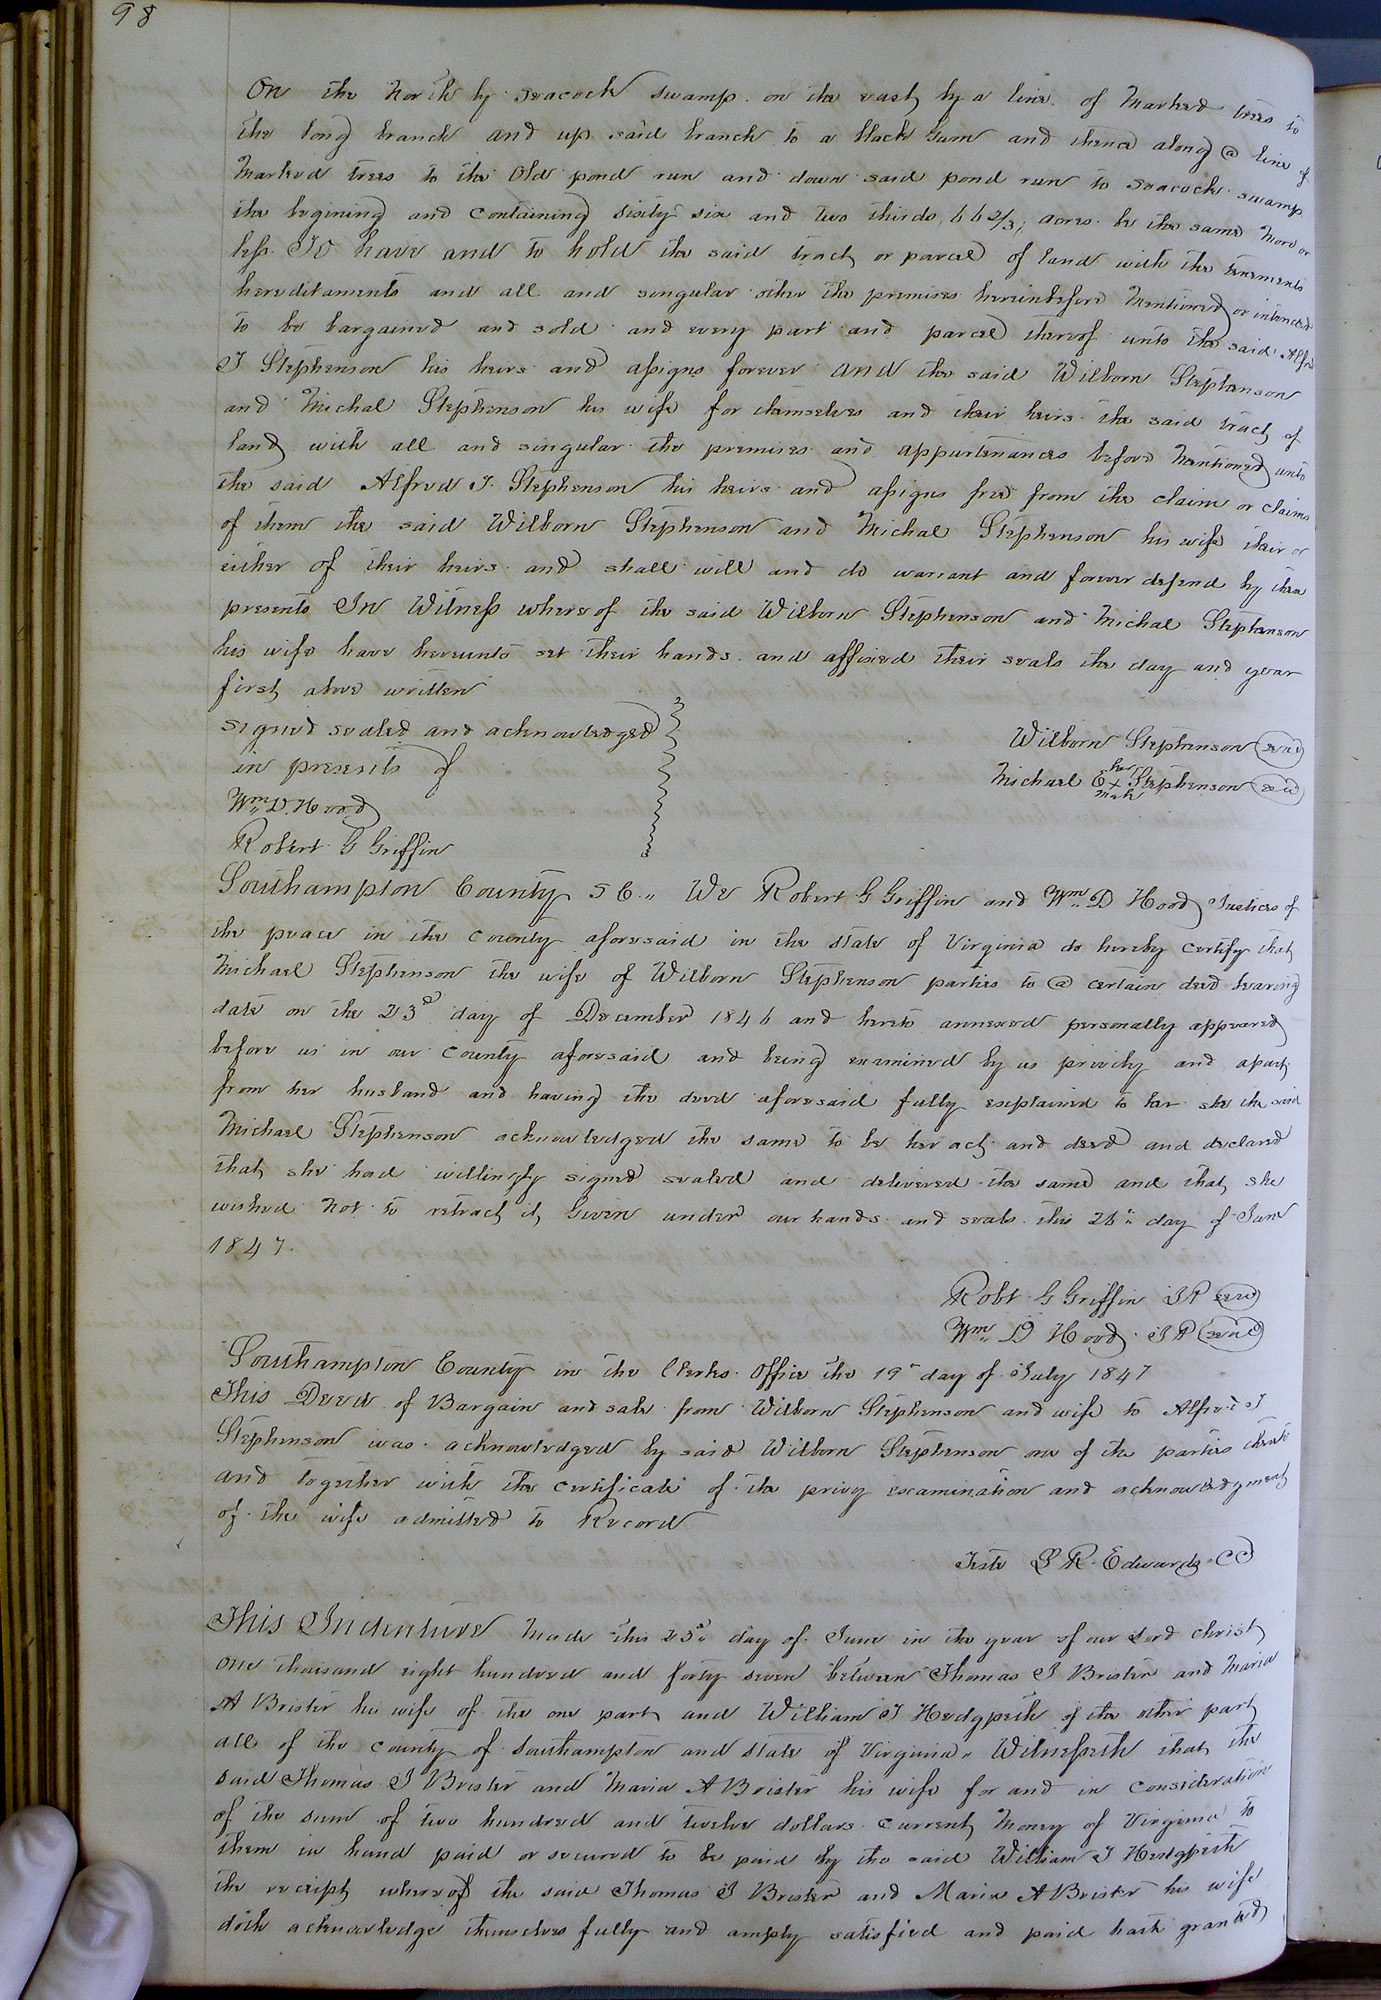 98
On the North by Seacock swamp. on the east by a line of Marked trees to
the long branch and up said branch to a black Gum and thence along @ line of
Marked trees to the Old pond run and down said pond run to Seacock swamp
the begining and Containing sixty six and two thirds, 66 2/3, acres be the same More or
less. To have and to hold the said tract or parcel of land with the tenements
hereditaments and all and singular other the premises hereinbefore Mentioned or intended
to be bargained and sold and every part and parcel thereof unto the said Alfred
J Stephenson his heirs and assigns forever And the said Wilborn Stephenson
and Michal Stephenson his wife for themselves and their heirs the said tract of
land with all and singular the premises and appurtenances before Mentioned unto
the said Alfred J. Stephenson his heirs and assigns free from the claim or claims
of them the said Wilborn Stephenson and Michal Stephenson his wife their or
either of their heirs and shall will and do warrant and forever defend by these
presents In Witness whereof the said Wilborn Stephenson and Michal Stephenson
his wife have hereunto set their hands and affixed their seals the day and year
first above written
signed sealed and acknowledged
in presents of
Wm D. Hood
Robert G Griffin
Wilborn Stephenson seal
her
Michael E x Stephenson seal
mark
Southampton County S C. We Robert G Griffin and Wm D Hood Justices of
the peace in the County aforesaid in the state of Virginia do hereby Certify that
Michael Stephenson the wife of Wilborn Stephenson parties to @ certain deed bearing
date on the 23d day of December 1846 and hereto annexed personally appeared
before us in our County aforesaid and being examined by us privily and apart
from her husband and having the deed aforesaid fully explained to her she the said
Michael Stephenson acknowledged the same to be her act and deed and declared
that she had willingly signed sealed and delivered the same and that she
wished Not to retract it, Given under our hands and seals this 26" day of June
1847.
Robt G Griffin JP seal
Wm D Hood JP seal
Southampton County in the Clerks Office the 19" day of July 1847
This Deed of Bargain and sale from Wilborn Stephenson and wife to Alfred J
Stephenson was acknowledged by said Wilborn Stephenson one of the parties thereto
and together with the Certificate of the privy examination and acknowledgment
of the wife admitted to Record
Teste L R. Edwards CC
This Indenture Made this 25" day of June in the year of our Lord Christ
One thousand eight hundred and forty seven between Thomas J Brister and Maria
A Brister his wife of the one part and William J Hedgpeth of the other part
all of the County of Southampton and state of Virginia. Witnesseth that the
said Thomas J Brister and Maria A Brister his wife for and in Consideration
of the sum of two hundred and twelve dollars Current Money of Virginia to
them in hand paid or secured to be paid by the said William J Hedgpeth
the receipt whereof the said Thomas J Brister and Maria A Brister his wife
doth acknowledge themselves fully and amply satisfied and paid hath granted